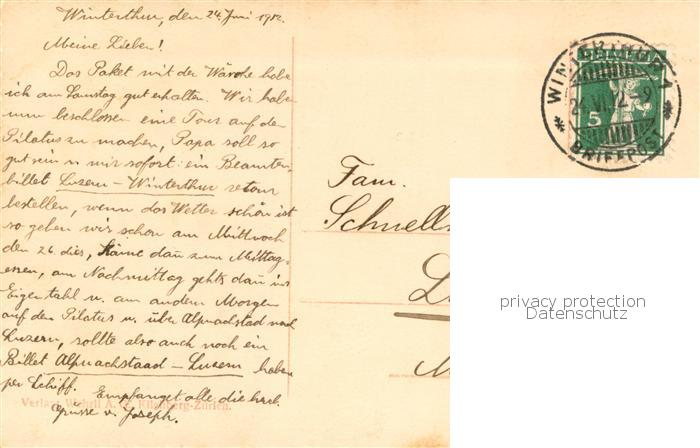 Winterthur, den 24. Juni 1912.
Meine Lieben!
Das Paket mit der Wäsche habe
ich am Samstag gut erhalten. Wir habe
nun beschlossen eine Tour auf den
Pilatus zu machen, Papa soll so
gut sein u mir sofort ein Beamten-
billet Luzern – Winterthur retour
bestellen, wenn das Wetter schön ist
so gehen wir schon am Mittwoch
den 26. dies, käme dan zum Mittag-
essen, am Nachmittag gehts dan ins
Eigenthal u. am andern Morgen
auf den Pilatus u. über Alpnachstad nach
Luzern, sollte also auch noch ein
Billet Alpnachstaad – Luzern haben
per Schiff. Empfanget alle die herzl.
Grüsse v. Joseph.
Verlag Wehrli A. G. Kilchberg-Zürich.
WINTERTHUR 1
24.VI.12.-9
BRIEFPOST
HELVETIA
5
Fam.
Schnell
L
privacy protection
Datenschutz